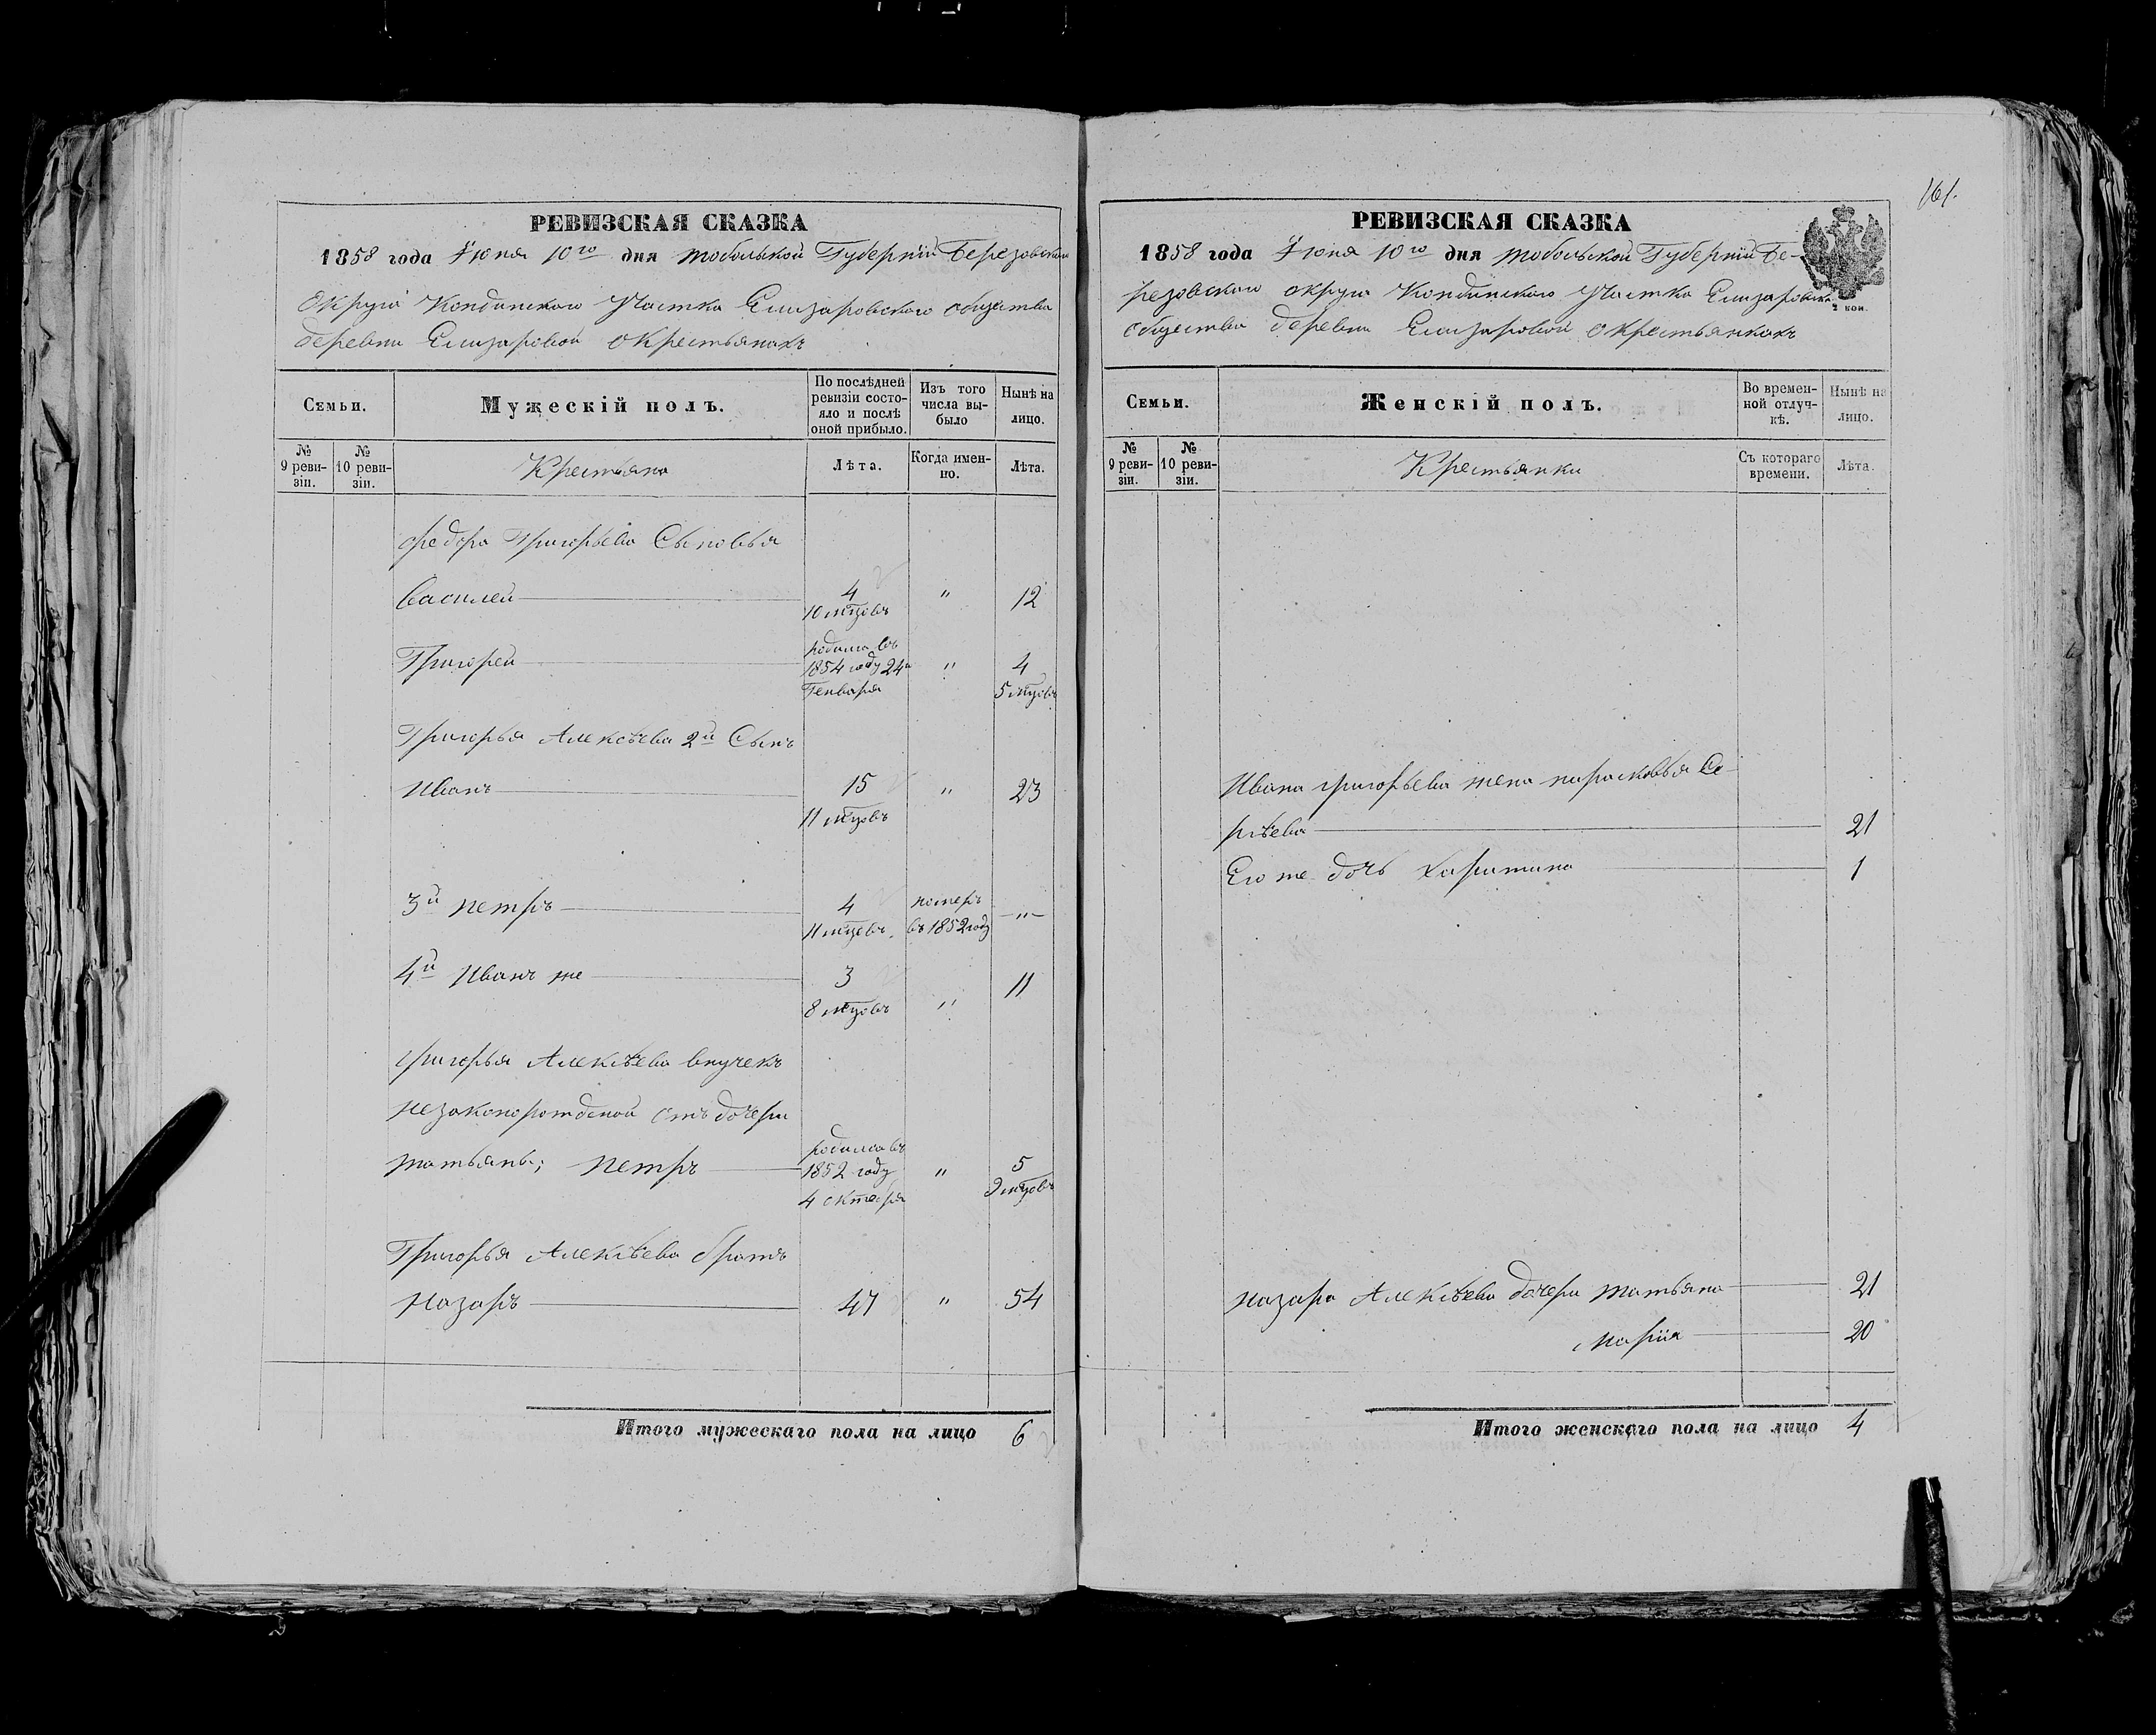 161.
РЕВИЗСКАЯ СКАЗКА
1858 года Іюня 10го дня Тобольской Губерніи Березовскаго
Округа Кондинскаго Участка Елизаровскаго общества
деревни Елизаровой о крестьянахъ
Семьи.
Мужескій полъ.
По послѣдней
ревизіи состо-
яло и послѣ
оной прибыло.
Изъ того
числа вы-
было
Нынѣ на
лицо.
№
9 реви-
зіи.
№
10 реви-
зіи.
Крестьяна
Лѣта.
Когда имен-
но.
Лѣта.
Федора Григорьева Сыновья
Василей 4 " 12
10 мцовъ
родился въ
Григорей 1854 году 24го " 4
Генваря 5 мцовъ
Григорья Алексѣева 2й Сынъ
Иванъ 15 " 23
11 мцовъ
3й Петръ 4 померъ "
11 мцовъ въ 1852 году
4й Иванъ же 3 11
8 мцовъ "
Григорья Алексѣева внучекъ
незаконорожденой отъ дочери
родился въ
Татьяны; Петръ 1852 году " 5
4 октября 9 мцовъ
Григорья Алексѣева братъ
Назаръ 47 " 54
Итого мужескаго пола на лицо 6
РЕВИЗСКАЯ СКАЗКА
1858 года Іюня 10го дня Тобольской Губерніи Бе-
резовскаго округа Кондинскаго Участка Елизаровскаго
2 коп.
общества деревни Елизаровой о крестьянкахъ
Семьи.
Женскій полъ.
Во времен-
ной отлуч-
кѣ.
Нынѣ на
лицо.
№
9 реви-
зіи.
№
10 реви-
зіи.
Крестьянки
Съ котораго
времени.
Лѣта.
Ивана Григорьева жена Парасковья Се-
ргѣева 21
Его же дочь Харитина 1
Назара Алексѣева дочери Татьяна 21
Марія 20
Итого женскаго пола на лицо 4